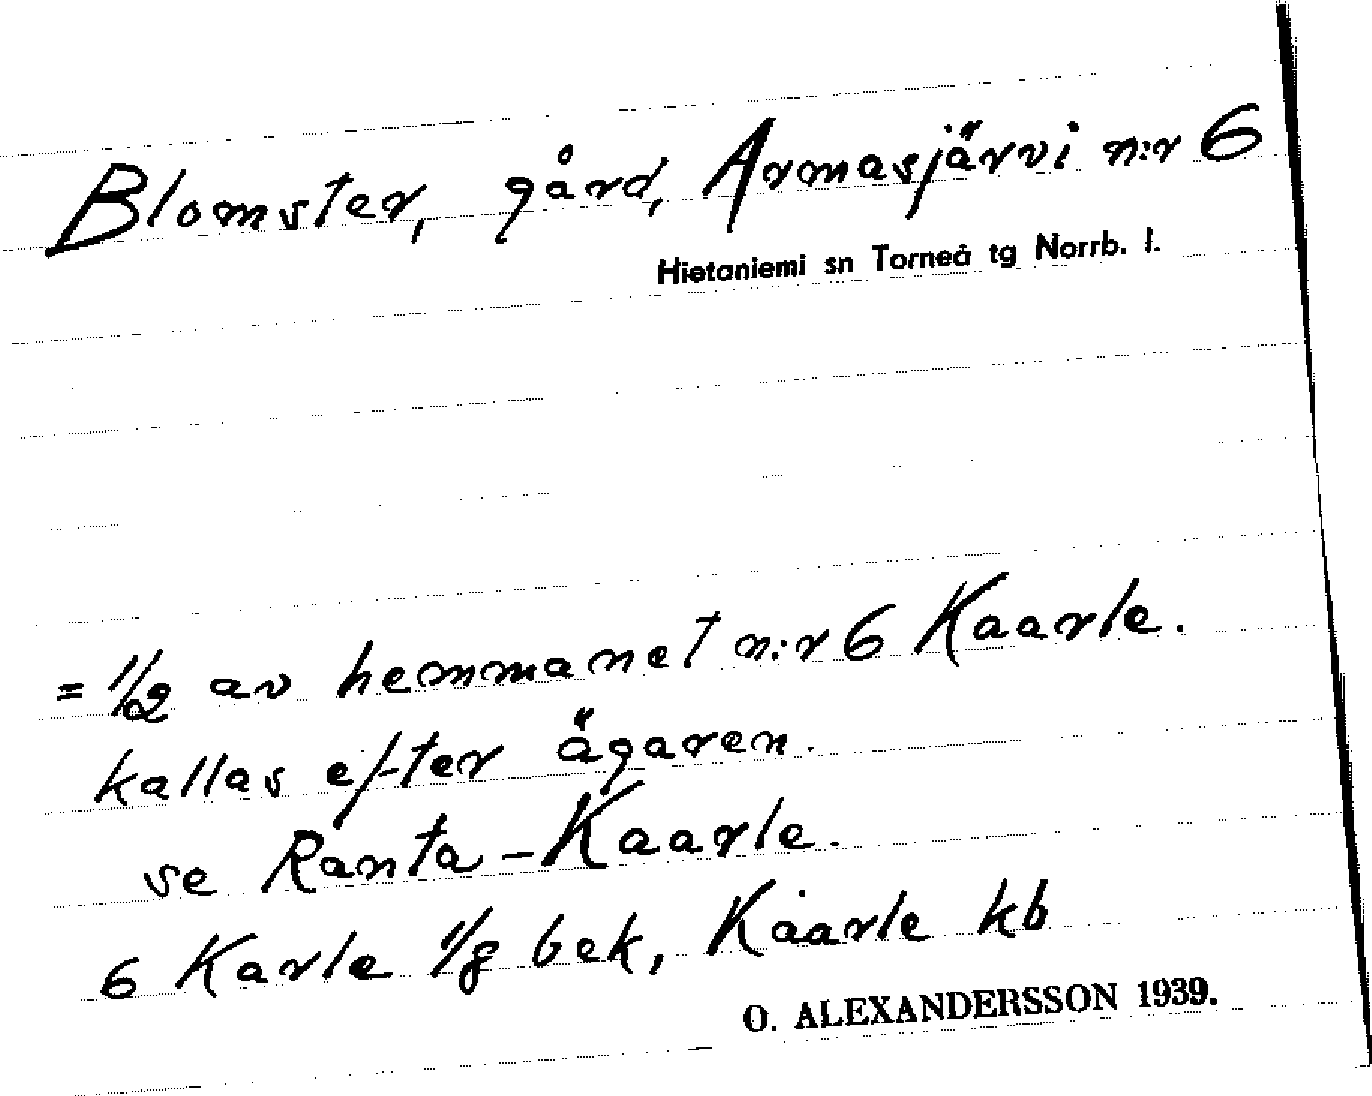 Blomster, gård, Armasjärvi n:r 6
Hietaniemi sn Torneå tg Norrb. l.
= 1/2 av hemmanet n:r 6 Kaarle.
kallas efter ägaren.
se Ranta-Kaarle.
6 Karle 1/8 bek, Kaarle kb
O. ALEXANDERSSON 1939.